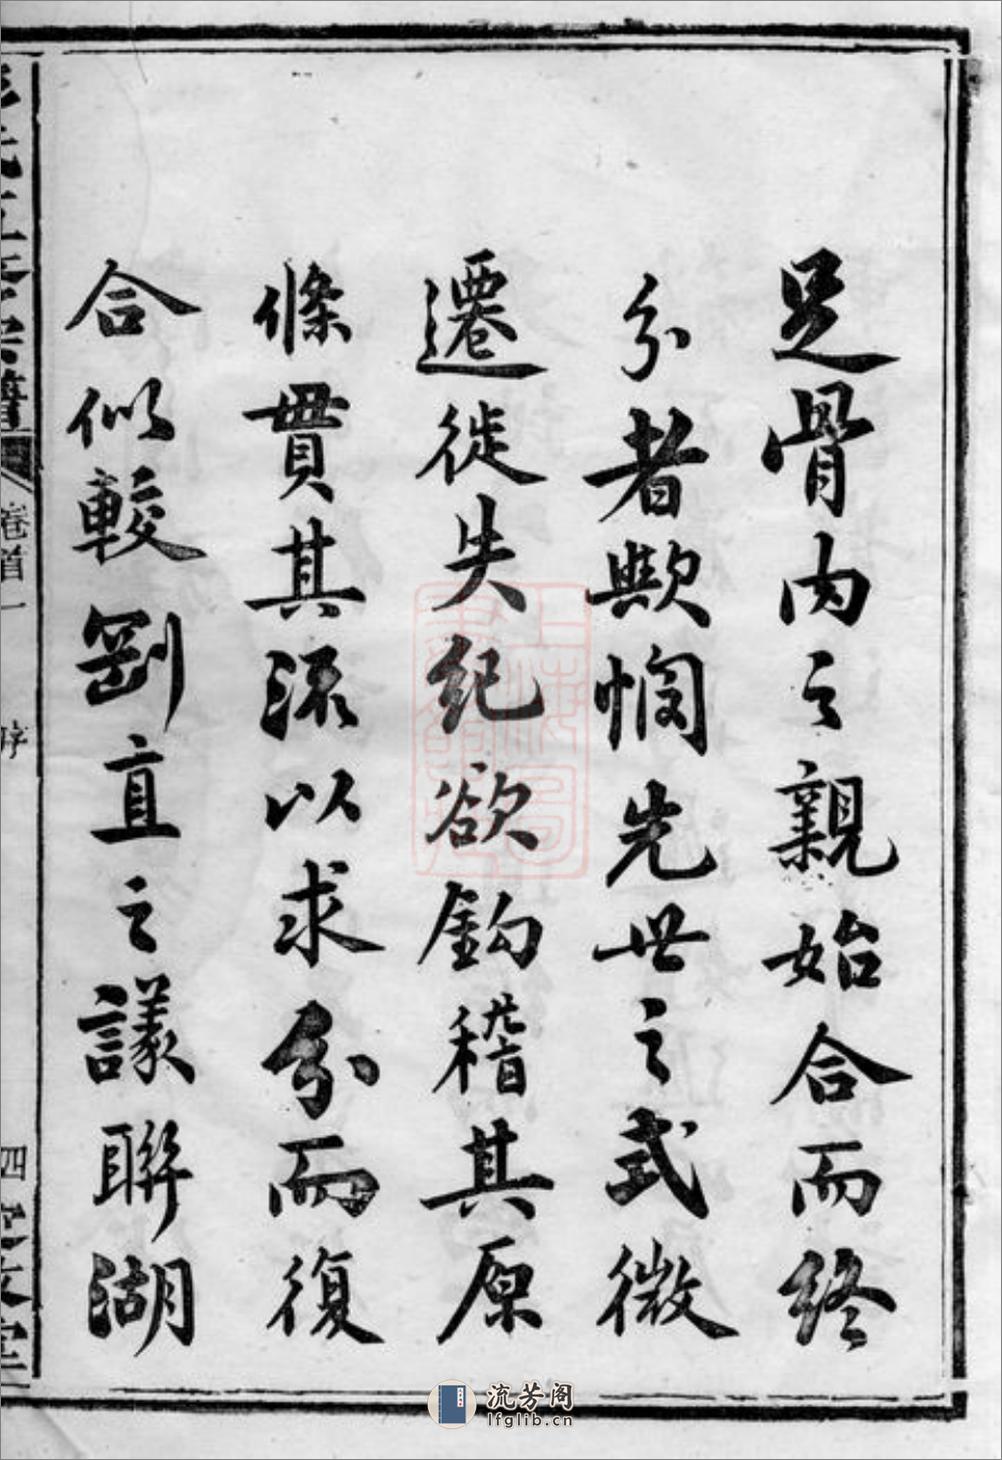 足骨内之親始合而終
分者歟憫先世之式微
遷徙失紀欲鈎稽其原
條貫其流以求分而復
合似較劉直之議聯湖
宗譜
卷首一
序
四
流芳阁
lfglib.cn